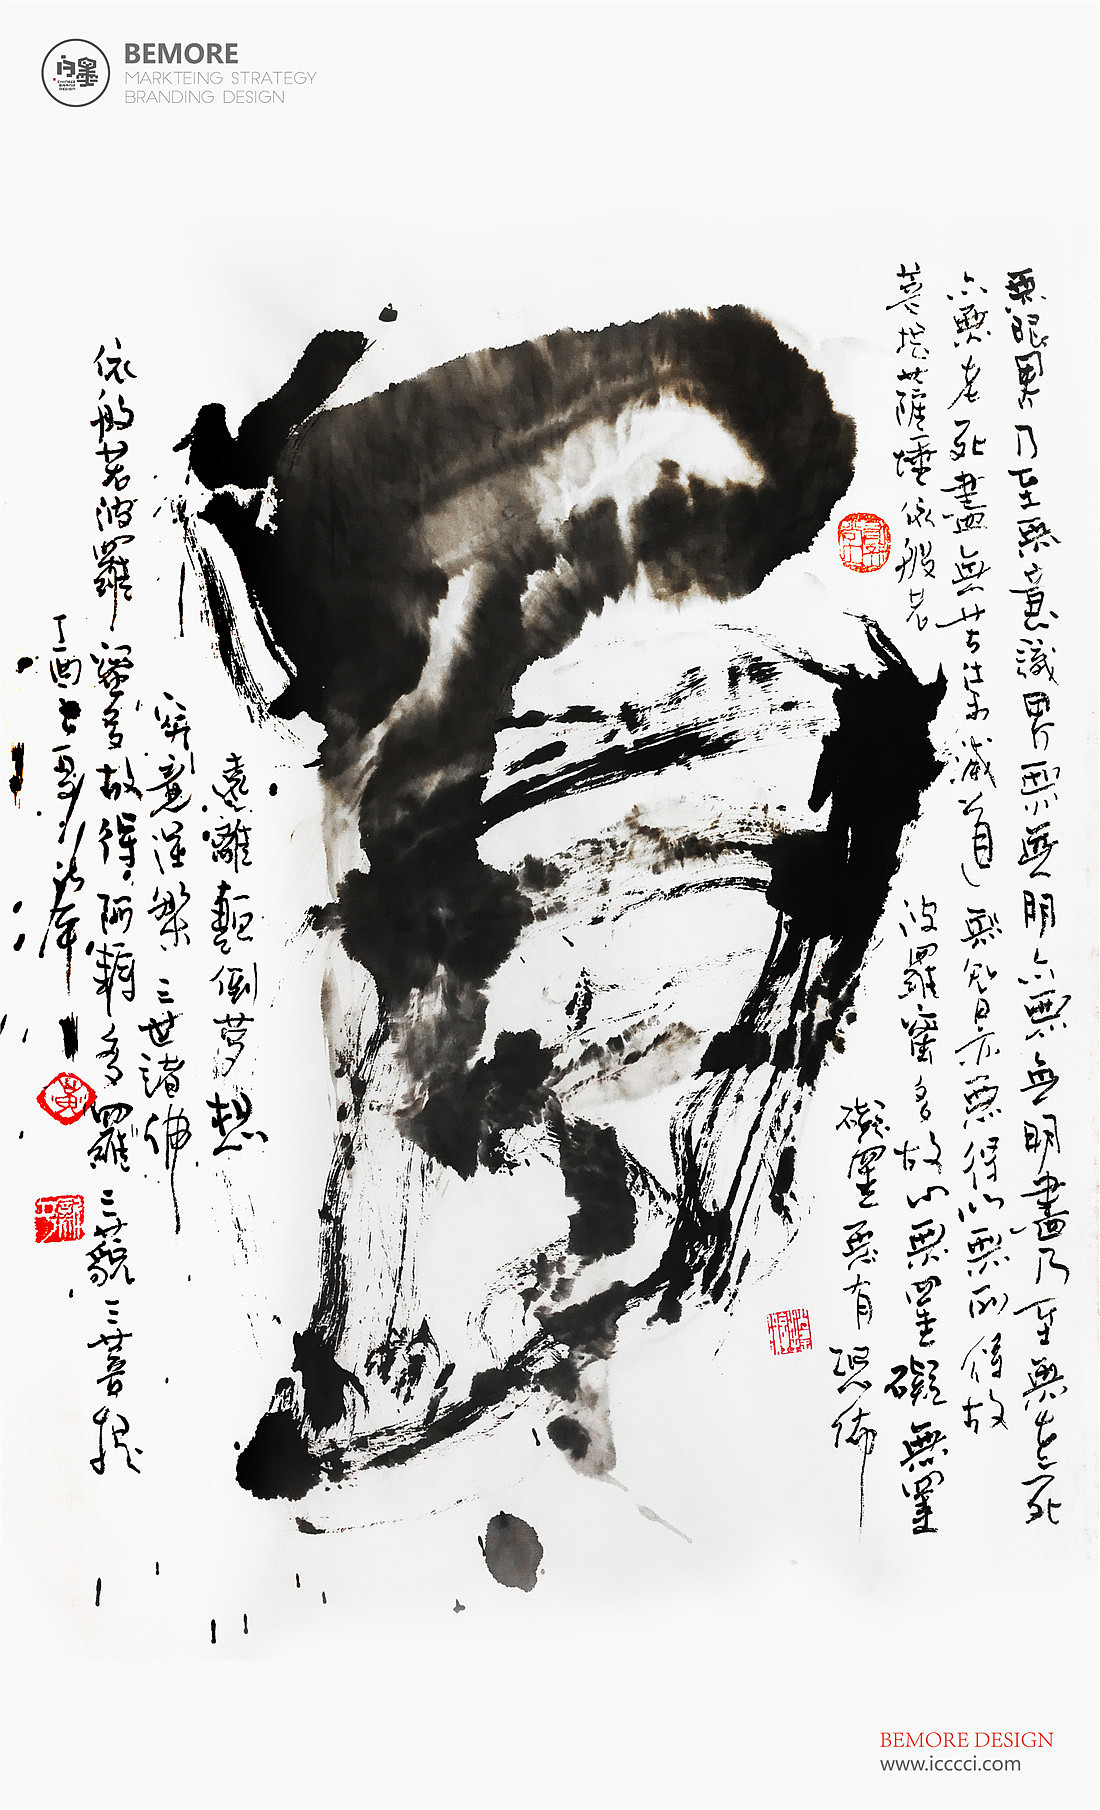 BEMORE
MARKTEING STRATEGY
BRANDING DESIGN
無眼界乃至無意識界無無明亦無無明盡乃至無老死
亦無老死盡無苦集滅道無智亦無得以無所得故
菩提薩埵依般若波羅蜜多故心無罣礙無罣
礙罣無有恐怖
遠離顛倒夢想
究竟涅槃三世諸佛
依般若波羅蜜多故得阿耨多羅三藐三菩提
丁酉之夏
BEMORE DESIGN
www.icccci.com